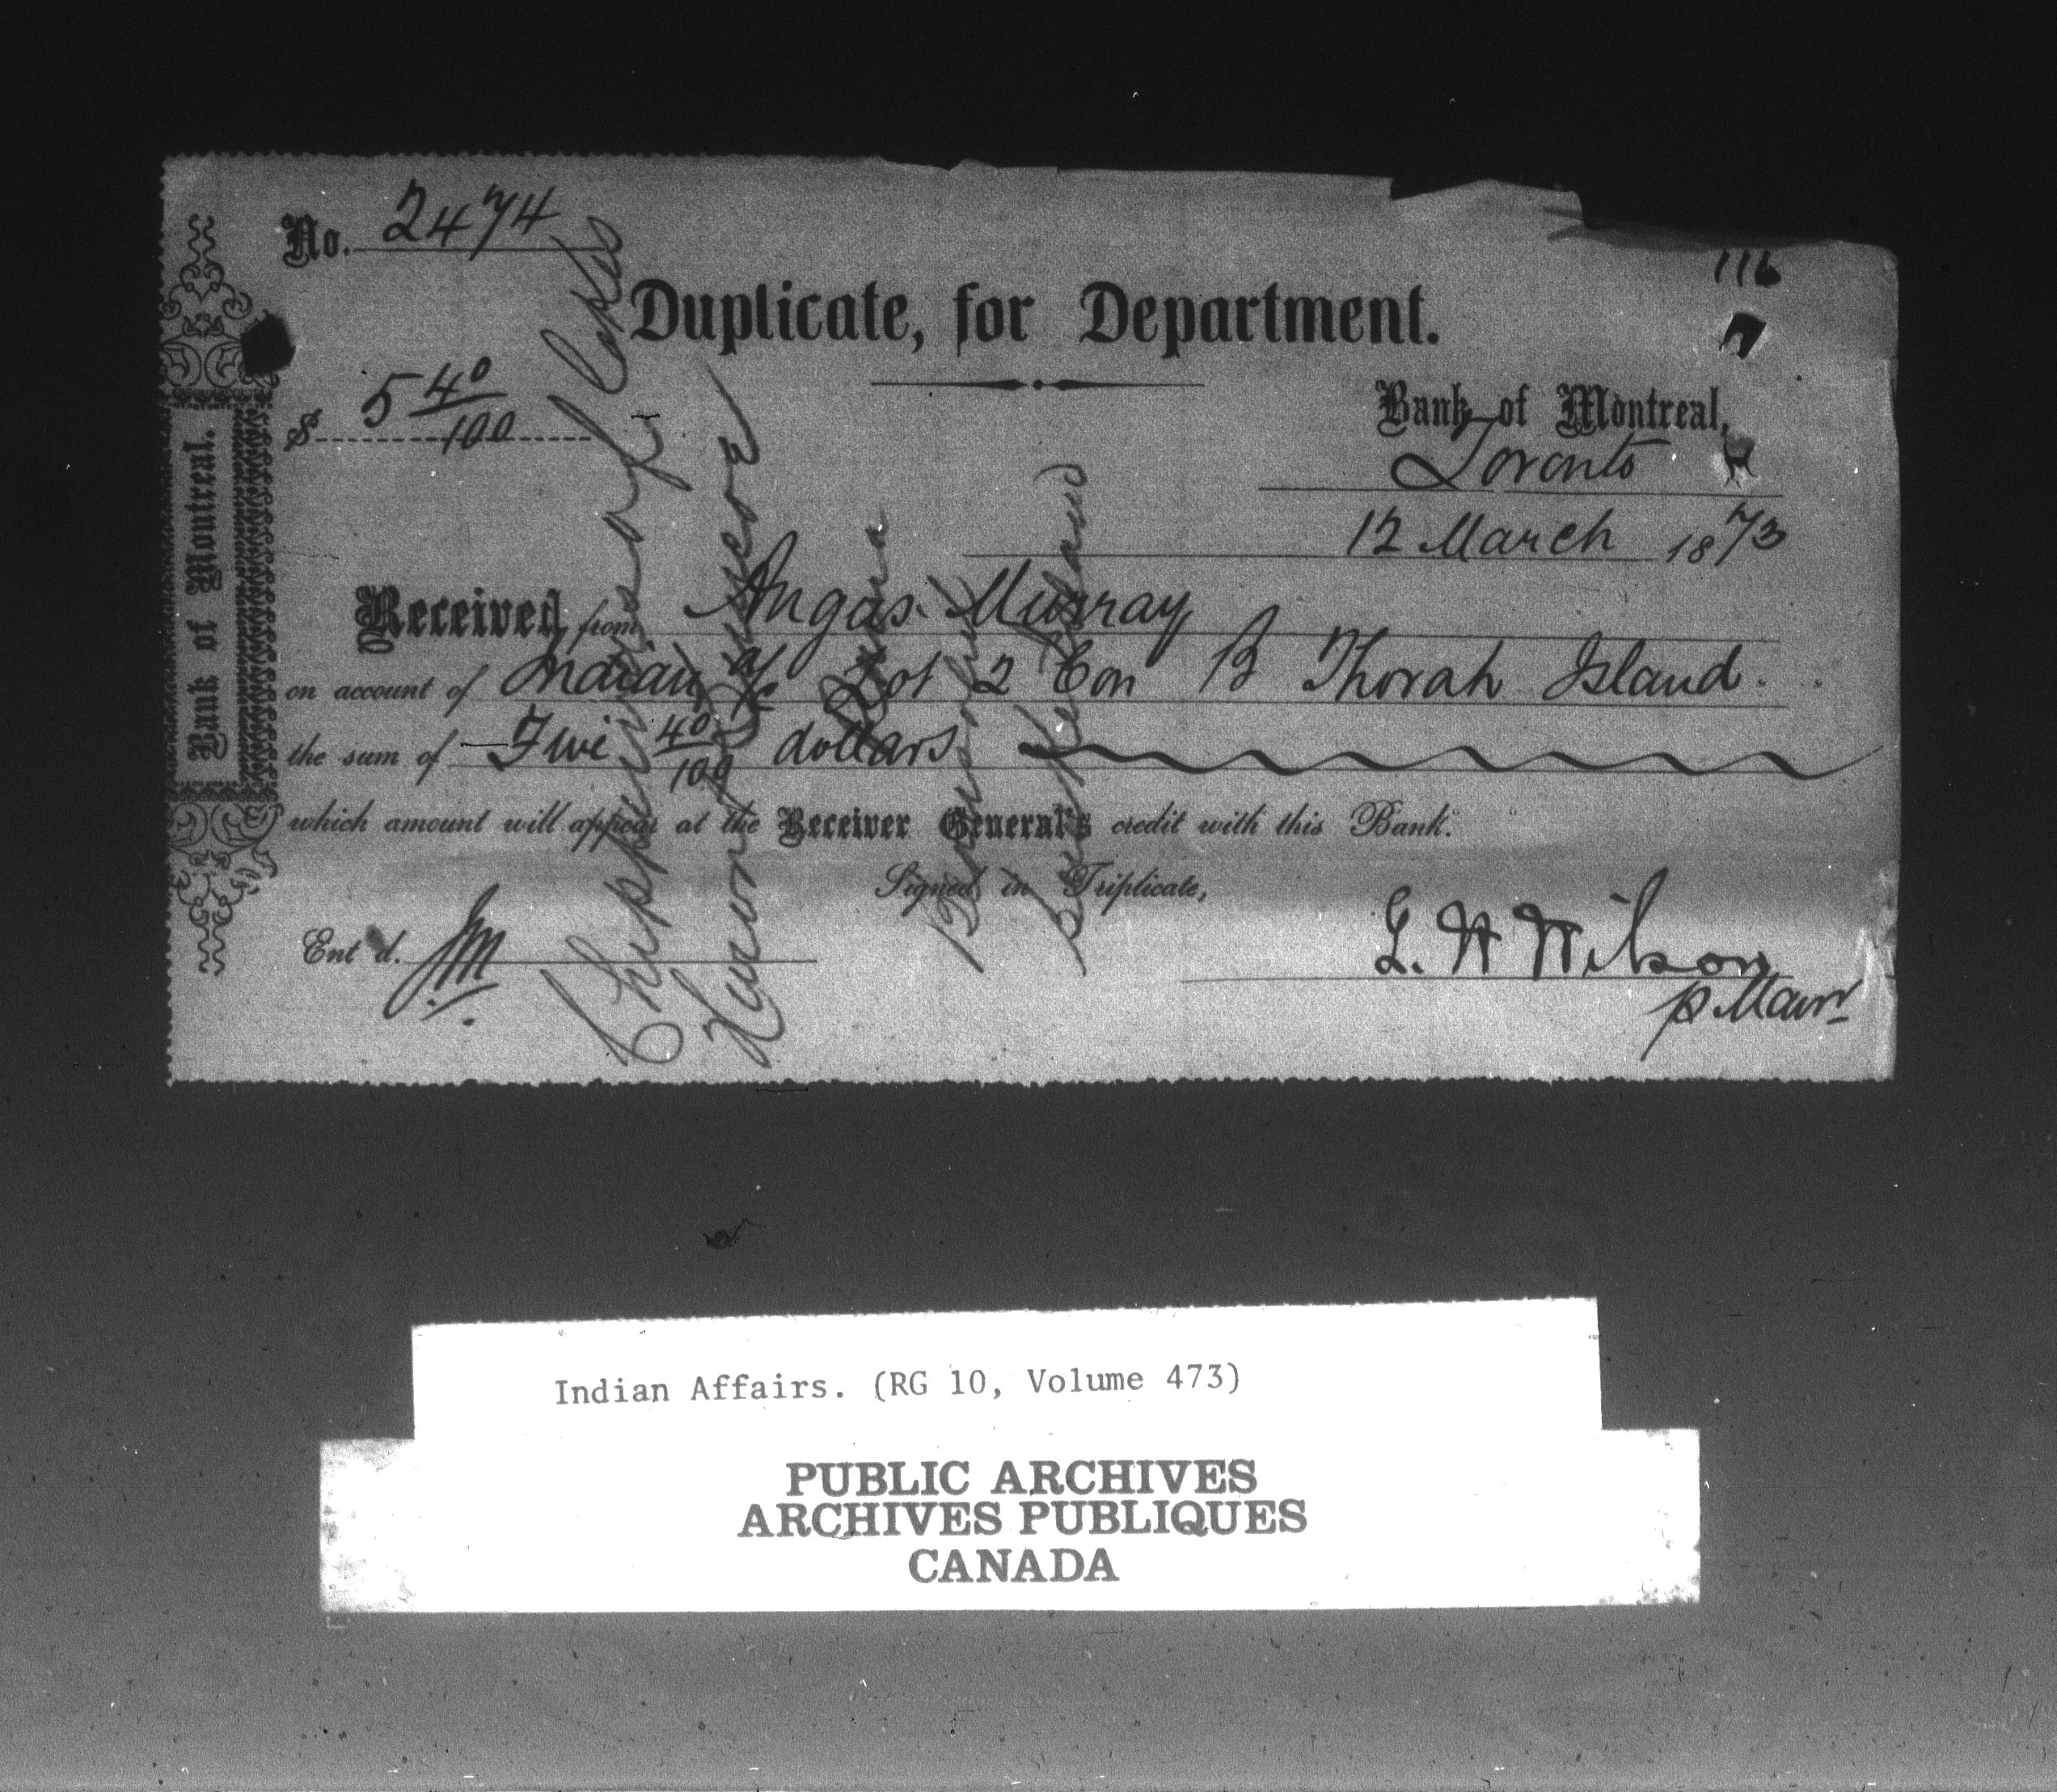 No. 2474
116
Duplicate, for Department.
$ 5 40/100
Bank of Montreal,
Toronto
12 March 1873
Received from Angas Murray
on account of Indian a/c Lot 2 Con B Thorah Island.
the sum of Five 40/100 dollars
which amount will appear at the Receiver General's credit with this Bank.
Signed in Triplicate,
Ent'd. JM
L. W Wilson
p Manr
Bank of Montreal.
Chippewas of Lakes
Huron & Simcoe
Indian Affairs. (RG 10, Volume 473)
PUBLIC ARCHIVES
ARCHIVES PUBLIQUES
CANADA